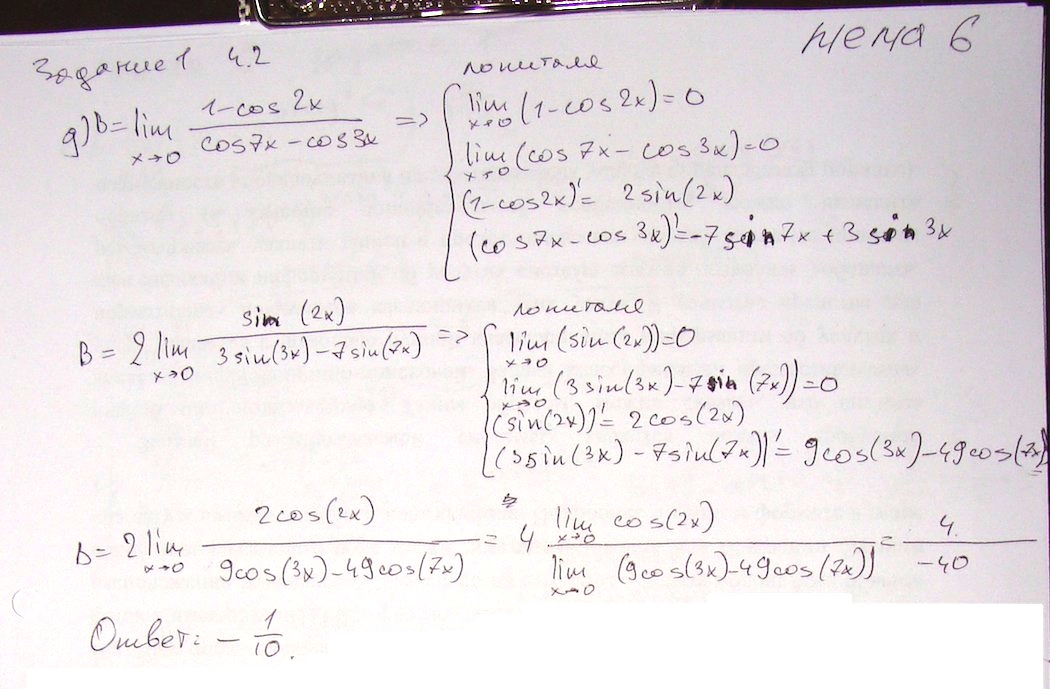 тема 6
Задание 1 4.2
g) B = lim x→0 (1-cos 2x)/(cos 7x - cos 3x) =>
лопиталя
lim x→0 (1-cos 2x) = 0
lim x→0 (cos 7x - cos 3x) = 0
(1-cos2x)' = 2 sin(2x)
(cos 7x - cos 3x)' = -7 sin 7x + 3 sin 3x
B = 2 lim x→0 sin (2x)/(3 sin(3x) - 7 sin(7x)) =>
лопиталя
lim x→0 (sin(2x)) = 0
lim x→0 (3 sin(3x) - 7 sin (7x)) = 0
(sin(2x))' = 2 cos(2x)
(3 sin(3x) - 7 sin(7x))' = 9cos(3x) - 49cos(7x)
B = 2 lim x→0 2cos(2x)/(9cos(3x) - 49cos(7x)) = 4 lim x→0 cos(2x)/lim x→0 (9cos(3x) - 49cos(7x)) = 4/-40
Ответ: - 1/10.